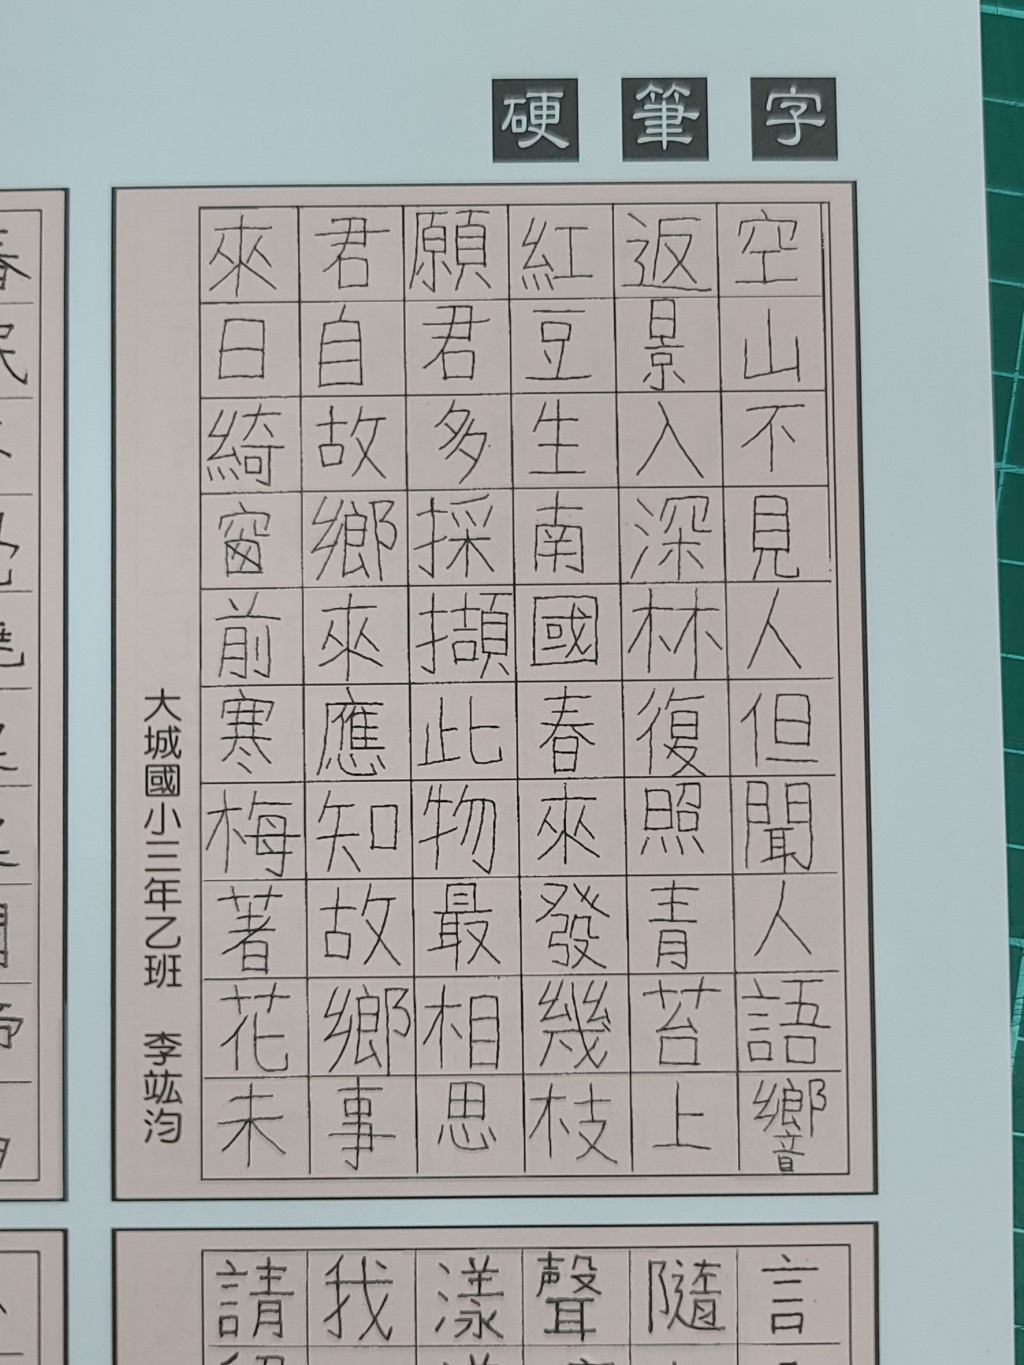 硬筆字
空山不見人但聞人語響
返景入深林復照青苔上
紅豆生南國春來發幾枝
願君多採擷此物最相思
君自故鄉來應知故鄉事
來日綺窗前寒梅著花未
大城國小三年乙班 李竑汮
言
隨
聲
漾
我
請